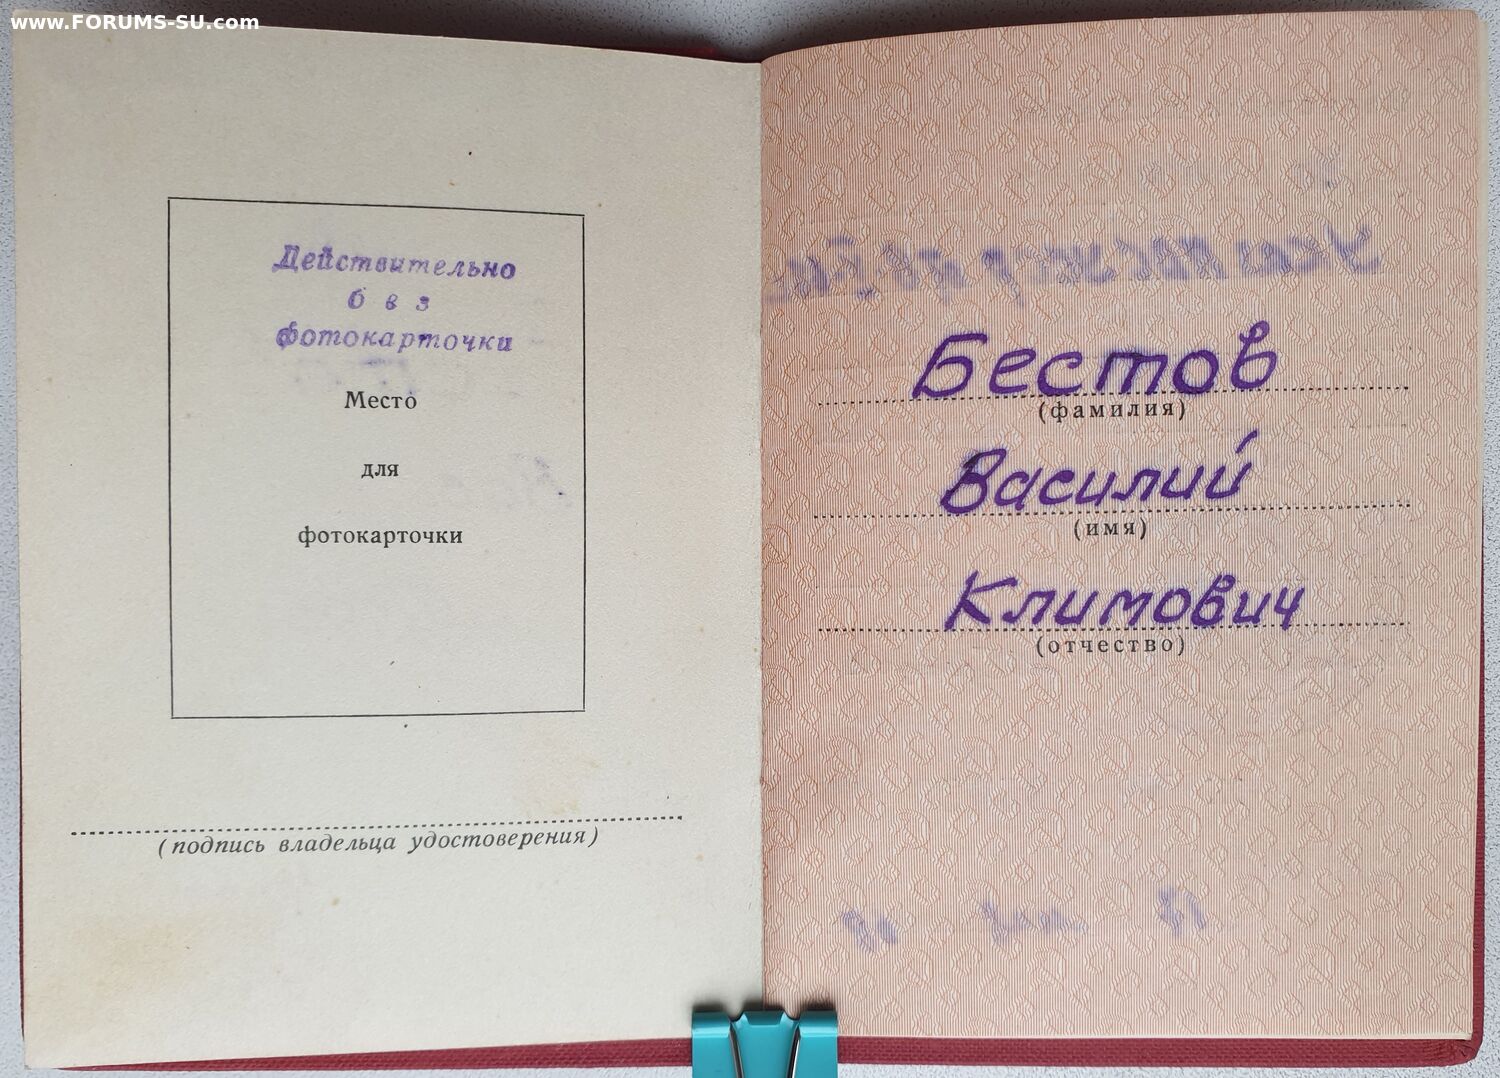 www.FORUMS-SU.com
Действительно
без
фотокарточки
Место
для
фотокарточки
(подпись владельца удостоверения)
Бестов
(фамилия)
Василий
(имя)
Климович
(отчество)